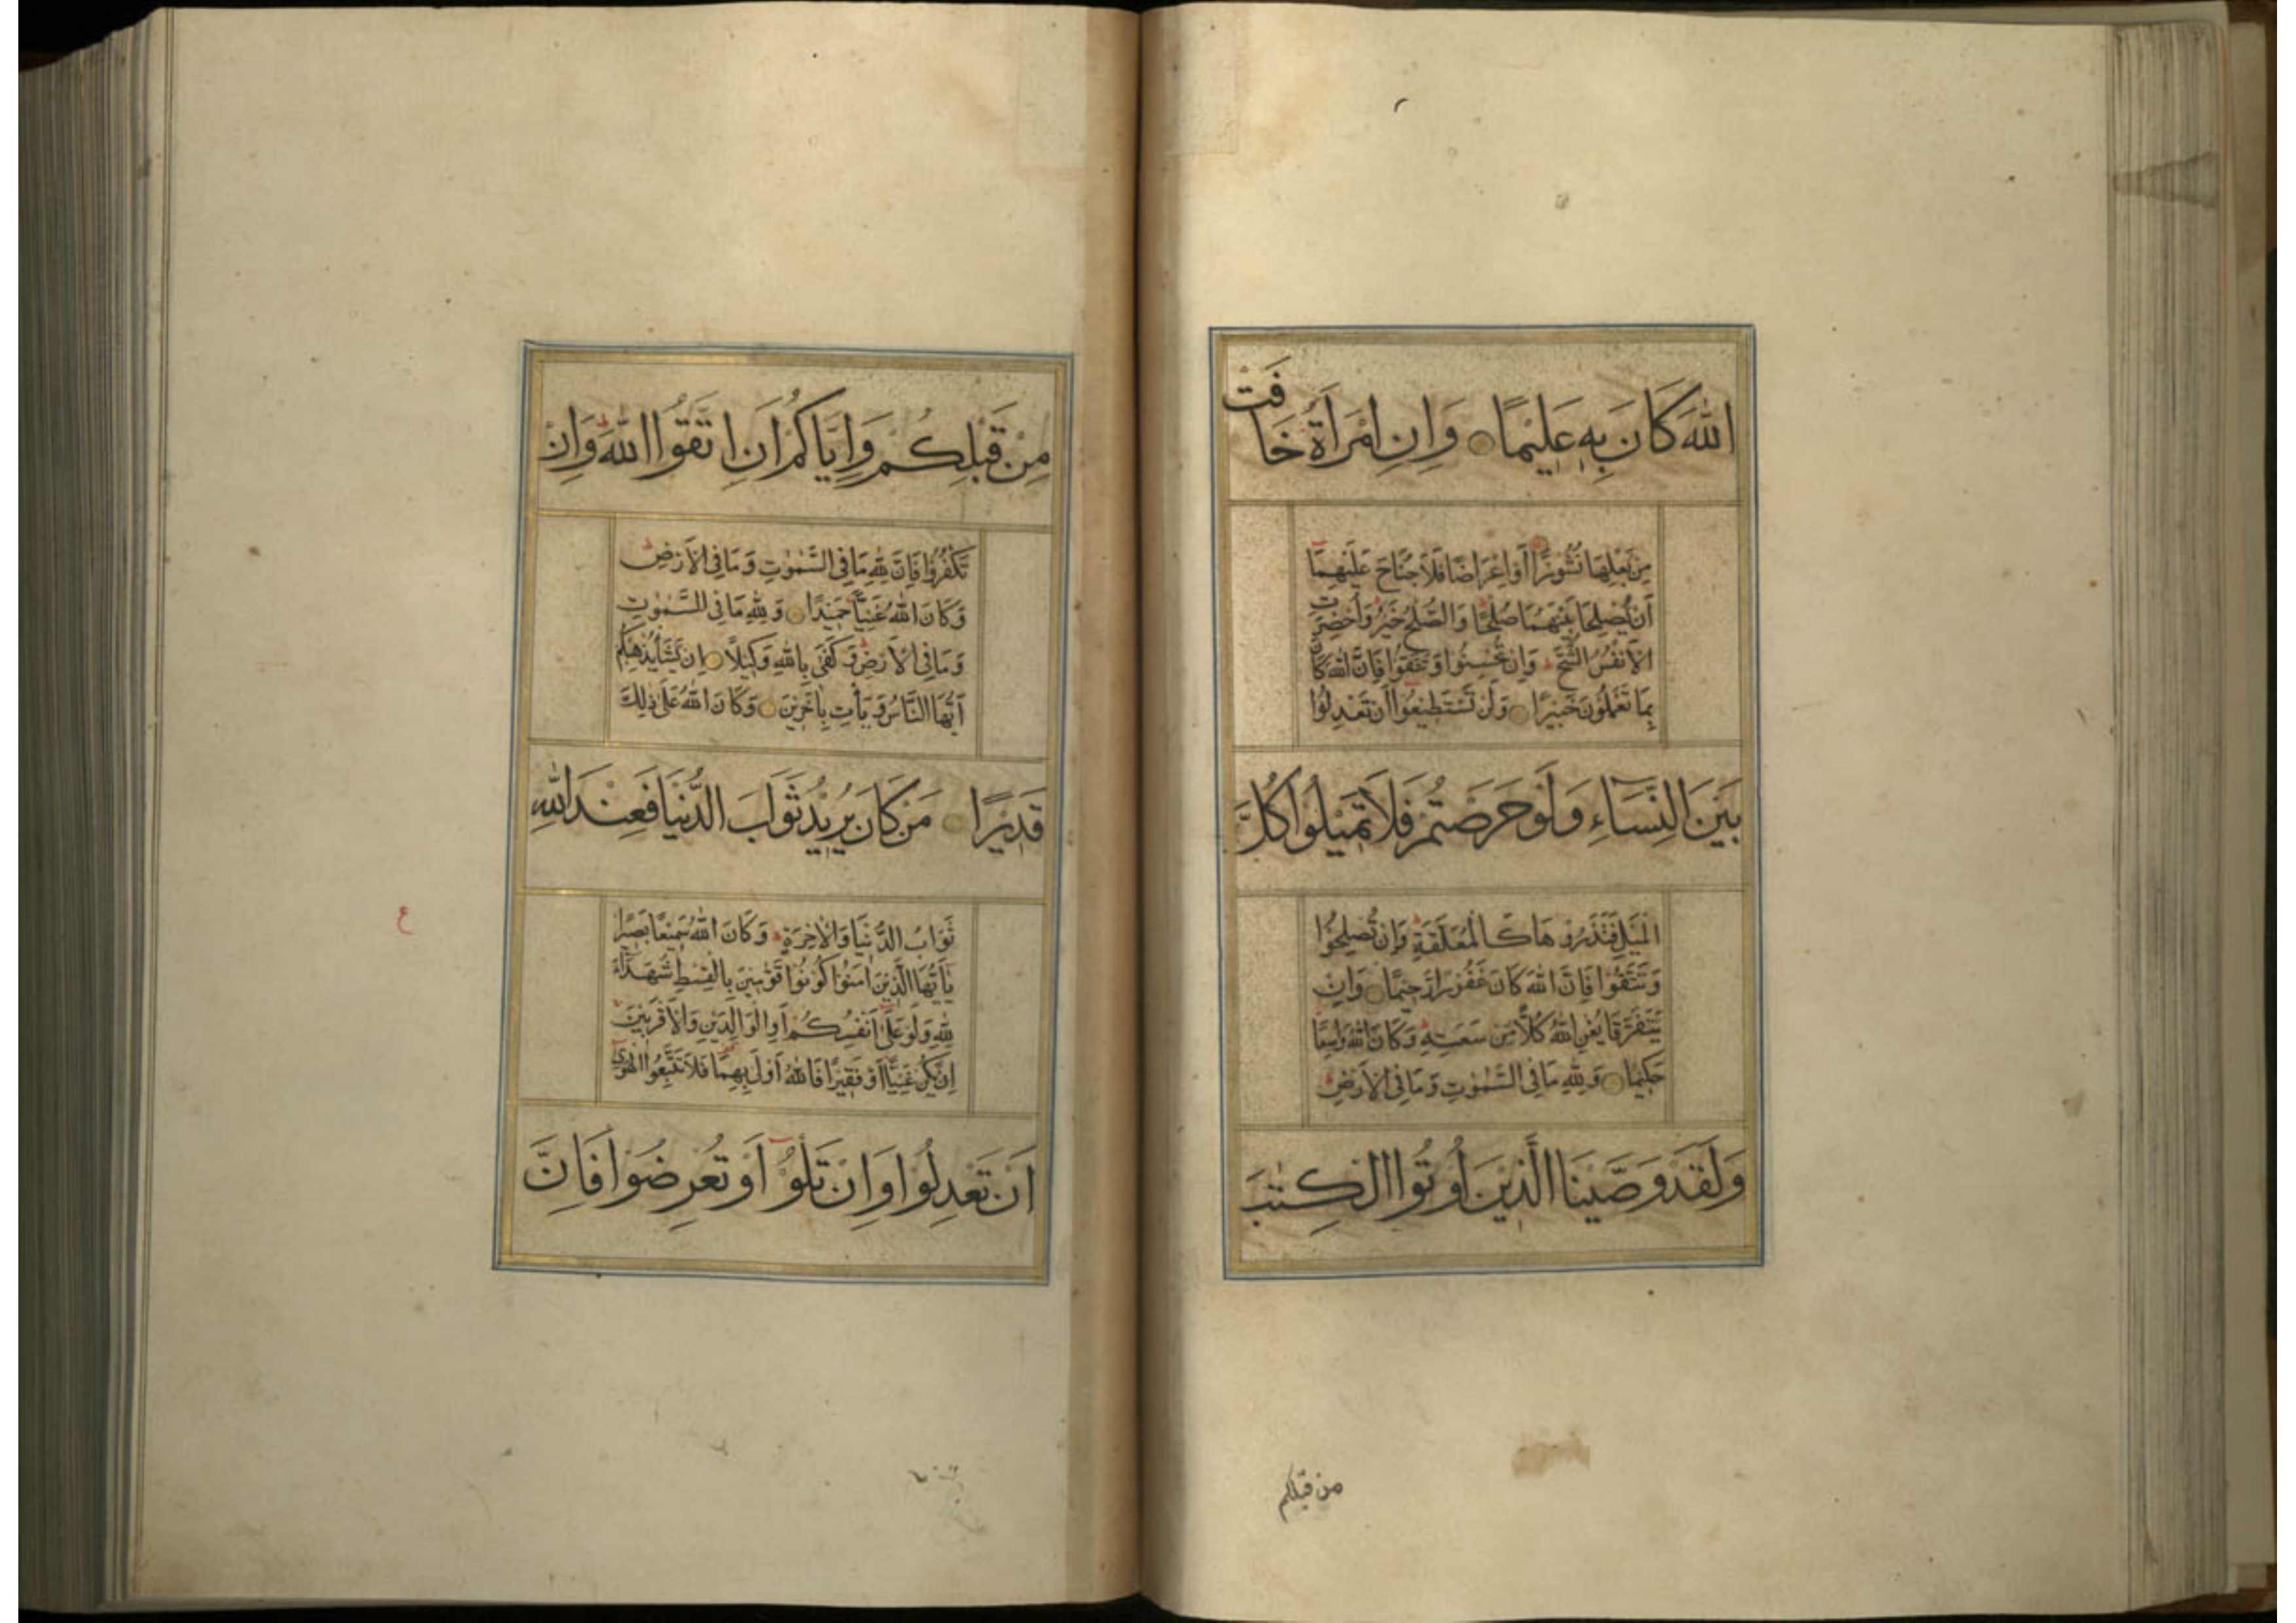 اللهَ كَانَ بِهِ عَلِيْمًا وَاِنِ امْرَأَةٌ خَافَتْ
مِنْ بَعْلِهَا نُشُوْزًا اَوْ اِعْرَاضًا فَلَا جُنَاحَ عَلَيْهِمَا
اَنْ يُصْلِحَا بَيْنَهُمَا صُلْحًا وَالصُّلْحُ خَيْرٌ وَاُحْضِرَتِ
الْاَنْفُسُ الشُّحَّ وَاِنْ تُحْسِنُوْا وَتَتَّقُوْا فَاِنَّ اللهَ كَانَ
بِمَا تَعْمَلُوْنَ خَبِيْرًا وَلَنْ تَسْتَطِيْعُوْا اَنْ تَعْدِلُوْا
بَيْنَ النِّسَاءِ وَلَوْ حَرَصْتُمْ فَلَا تَمِيْلُوْا كُلَّ
الْمَيْلِ فَتَذَرُوْهَا كَالْمُعَلَّقَةِ وَاِنْ تُصْلِحُوْا
وَتَتَّقُوْا فَاِنَّ اللهَ كَانَ غَفُوْرًا رَحِيْمًا وَاِنْ
يَتَفَرَّقَا يُغْنِ اللهُ كُلًّا مِنْ سَعَتِهِ وَكَانَ اللهُ وَاسِعًا
حَكِيْمًا وَلِلّٰهِ مَا فِى السَّمٰوٰتِ وَمَا فِى الْاَرْضِ
وَلَقَدْ وَصَّيْنَا الَّذِيْنَ اُوْتُوا الْكِتٰبَ
من قبلكم
مِنْ قَبْلِكُمْ وَاِيَّاكُمْ اَنِ اتَّقُوا اللهَ وَاِنْ
تَكْفُرُوْا فَاِنَّ لِلّٰهِ مَا فِى السَّمٰوٰتِ وَمَا فِى الْاَرْضِ
وَكَانَ اللهُ غَنِيًّا حَمِيْدًا وَلِلّٰهِ مَا فِى السَّمٰوٰتِ
وَمَا فِى الْاَرْضِ وَكَفٰى بِاللهِ وَكِيْلًا اِنْ يَشَأْ يُذْهِبْكُمْ
اَيُّهَا النَّاسُ وَيَأْتِ بِاٰخَرِيْنَ وَكَانَ اللهُ عَلٰى ذٰلِكَ
قَدِيْرًا مَنْ كَانَ يُرِيْدُ ثَوَابَ الدُّنْيَا فَعِنْدَ اللهِ
ثَوَابُ الدُّنْيَا وَالْاٰخِرَةِ وَكَانَ اللهُ سَمِيْعًا بَصِيْرًا
يٰاَيُّهَا الَّذِيْنَ اٰمَنُوْا كُوْنُوْا قَوّٰمِيْنَ بِالْقِسْطِ شُهَدَاءَ
لِلّٰهِ وَلَوْ عَلٰى اَنْفُسِكُمْ اَوِ الْوَالِدَيْنِ وَالْاَقْرَبِيْنَ
اِنْ يَكُنْ غَنِيًّا اَوْ فَقِيْرًا فَاللهُ اَوْلٰى بِهِمَا فَلَا تَتَّبِعُوا الْهَوٰى
اَنْ تَعْدِلُوْا وَاِنْ تَلْوٗا اَوْ تُعْرِضُوْا فَاِنَّ
ع